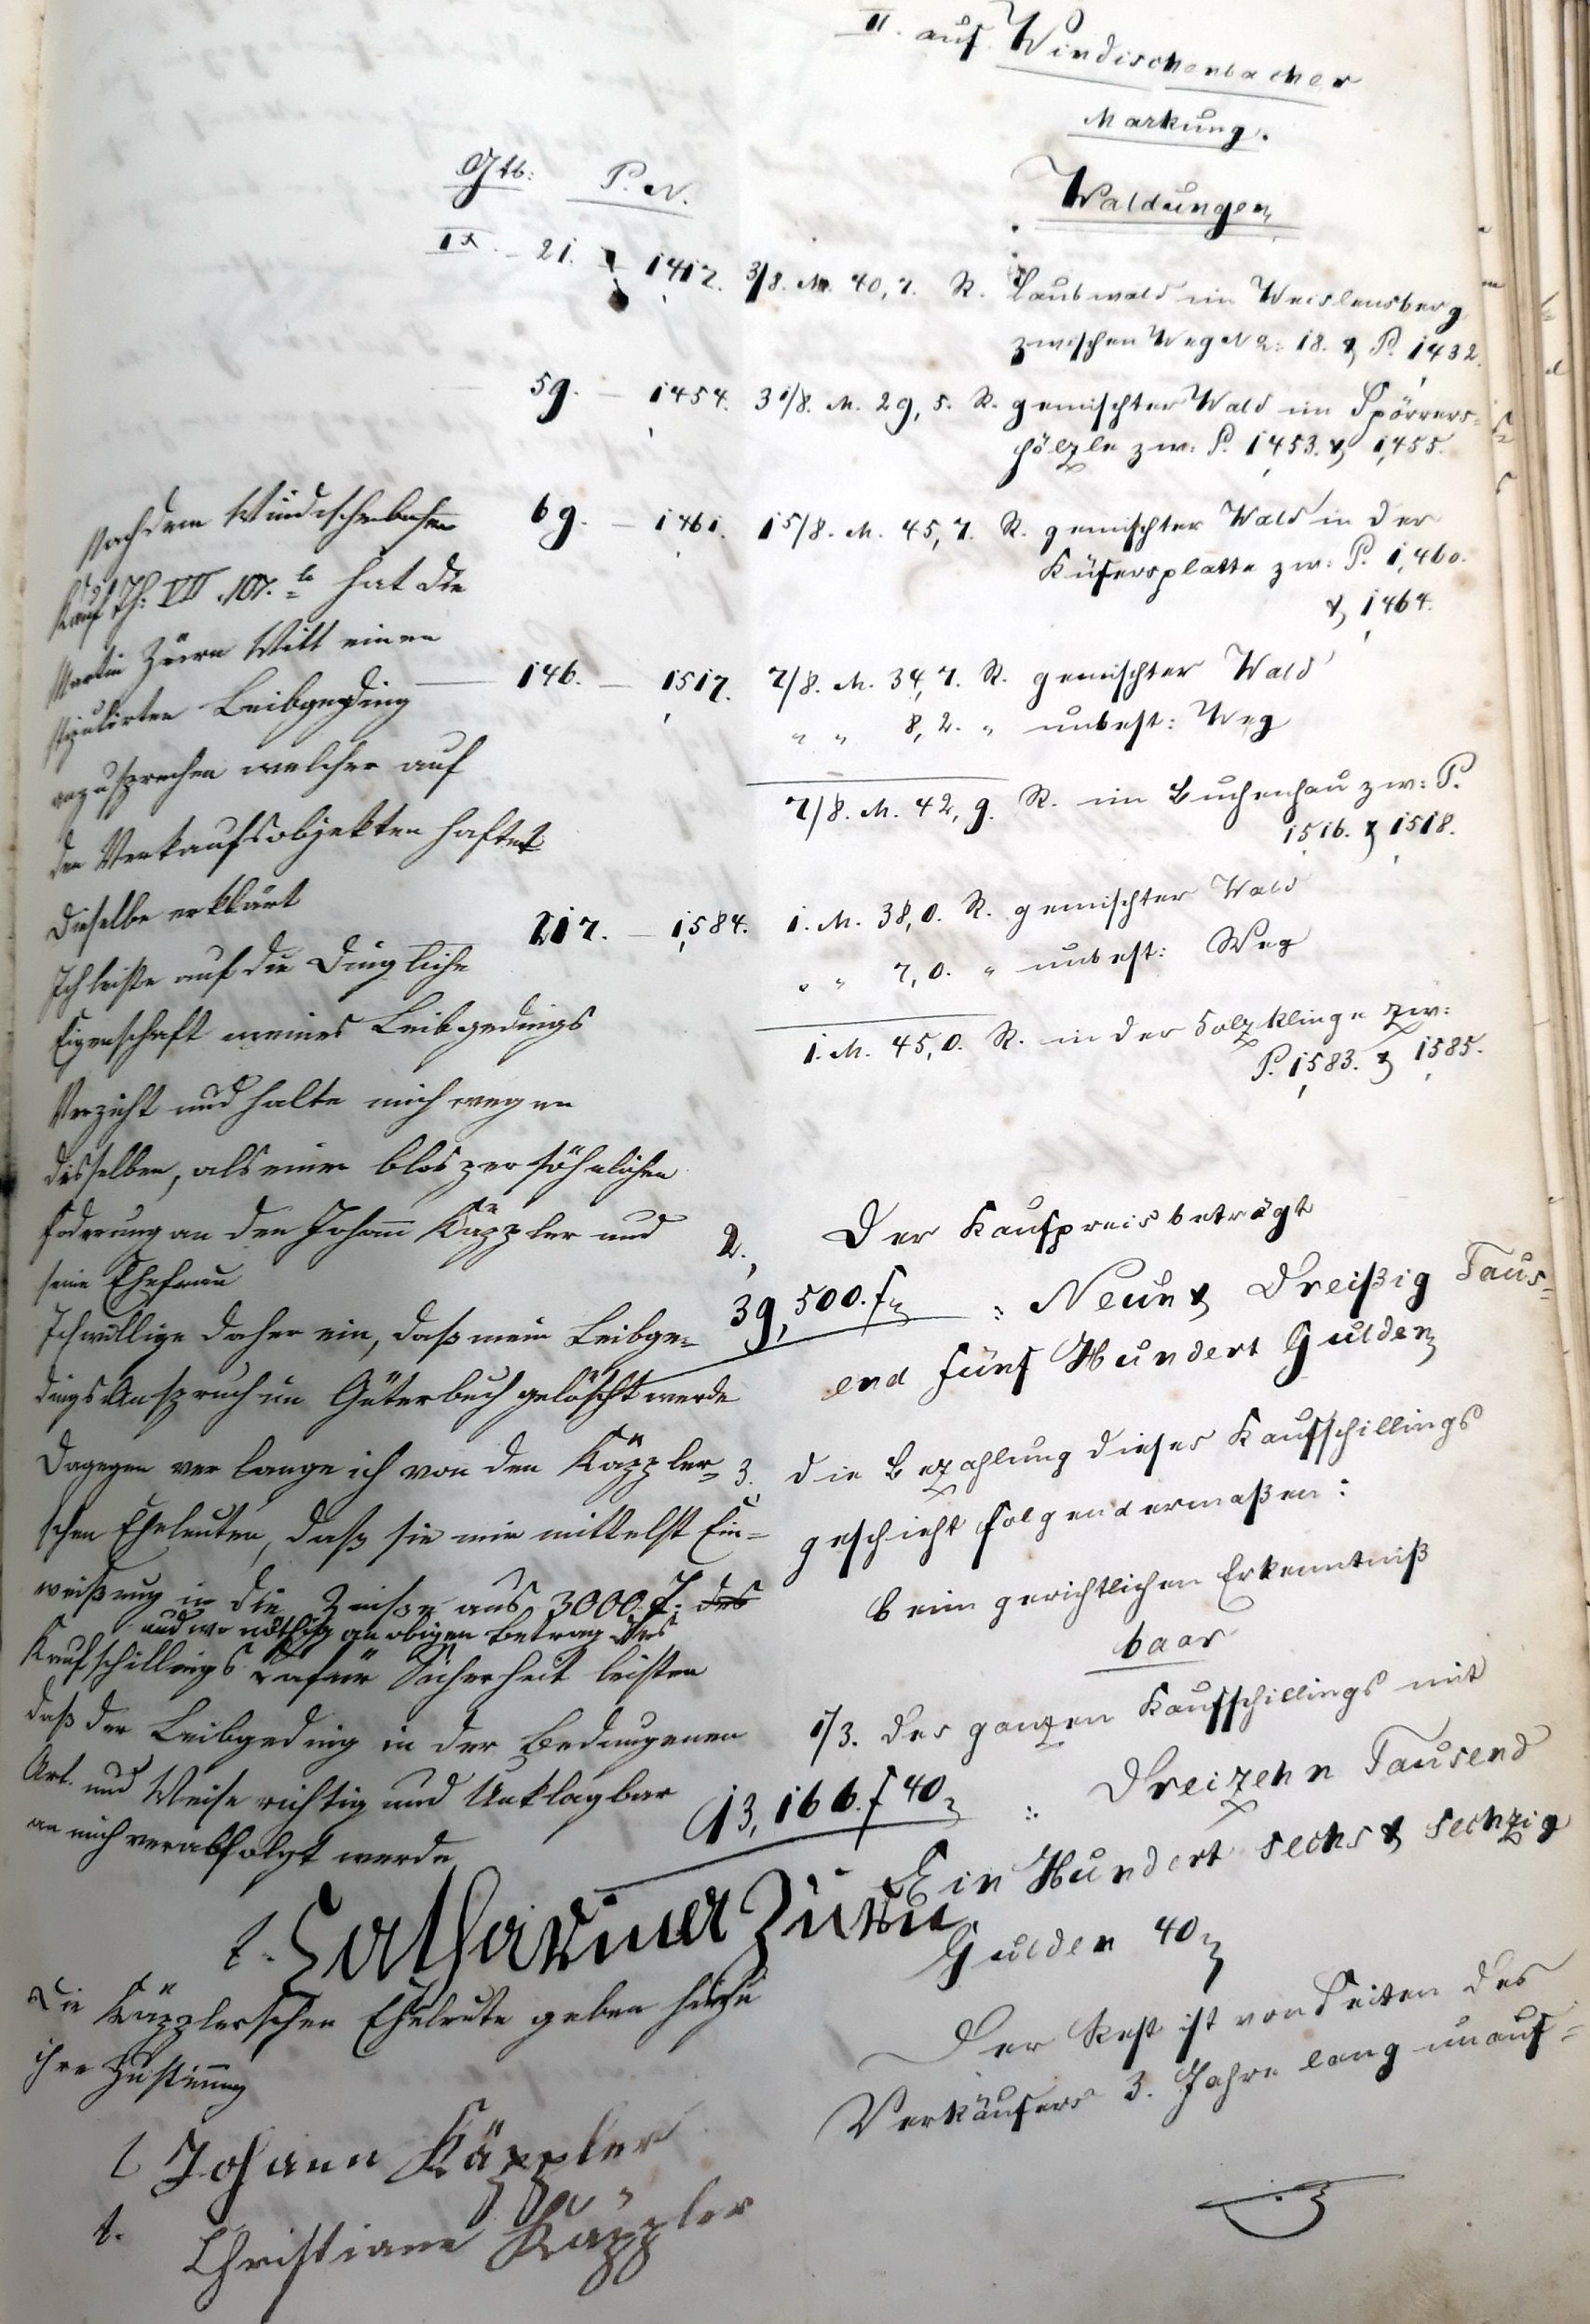 II. auf Windischenbacher
Markung.
Gtb: P. N.
Waldungen
IX. - 21. - 1417. 3/8. M. 40,7. R. Laubwald im Weislensberg
zwischen Weg No: 18. & P. 1432.
59. - 1454. 3 1/8. M. 29,5. R. gemischter Wald im Spörrers-
hölzle zw: P. 1453. & 1455.
69. - 1461. 1 5/8. M. 45,7. R. gemischter Wald in der
Küfersplatte zw: P. 1460.
& 1464.
146. - 1517. 7/8. M. 34,7. R. gemischter Wald
" " 8,2. " unbest: Weg
7/8. M. 42,9. R. im Buchenhau zw: P.
1516. & 1518.
217. - 1584. 1. M. 38,0. R. gemischter Wald
" " 7,0. " unbest: Weg
1. M. 45,0. R. in der Salzklinge zw:
P. 1583. & 1585.
Nach dem Windischenbacher
Kauf Th: VII. 107. b hat die
Martin Zürn Witt einen
stipulirten Leibgeding
anzusprechen welcher auf
den Verkaufsobjekten haftet
Dieselbe erklärt
Ich leiste auf die Dingliche
Eigenschaft meines Leibgedings
Verzicht und halte mich wegen
desselben, als einer blos persöhnlichen
Foderung an den Johann Käppler und
seine Ehefrau
Ich willige daher ein, daß mein Leibge-
dings Anspruch im Güterbuch gelöscht werde
Dagegen verlange ich von den Käppler-
schen Eheleuten, daß sie mir mittelst Ein-
weißung in die Zinße aus 3000 f: des
und wo nöthig an obigen Betrag des
Kaufschillings dafür Sicherheit leisten
daß der Leibgeding in der Bedungenen
Art und Weise richtig und Unklagbar
an mich verabfolgt werde
t. Catharina Zürn
Die Käpplerschen Eheleute geben hiezu
ihre Zustimung
t Johann Käppler
t. Christiane Käppler
2. Der Kaufpreis beträgt
39,500. f : Neun & Dreißig Taus-
end fünf Hundert Gulden
3. die Bezahlung dieses Kaufschillings
geschieht folgendermaßen:
beim gerichtlichen Erkenntniß
baar
1/3. des ganzen Kaufschillings mit
13,166. f 40 : Dreizehn Tausend
Ein Hundert sechs & sechzig
Gulden 40
Der Rest ist von Seiten des
Verkäufers 3. Jahre lang unauf-